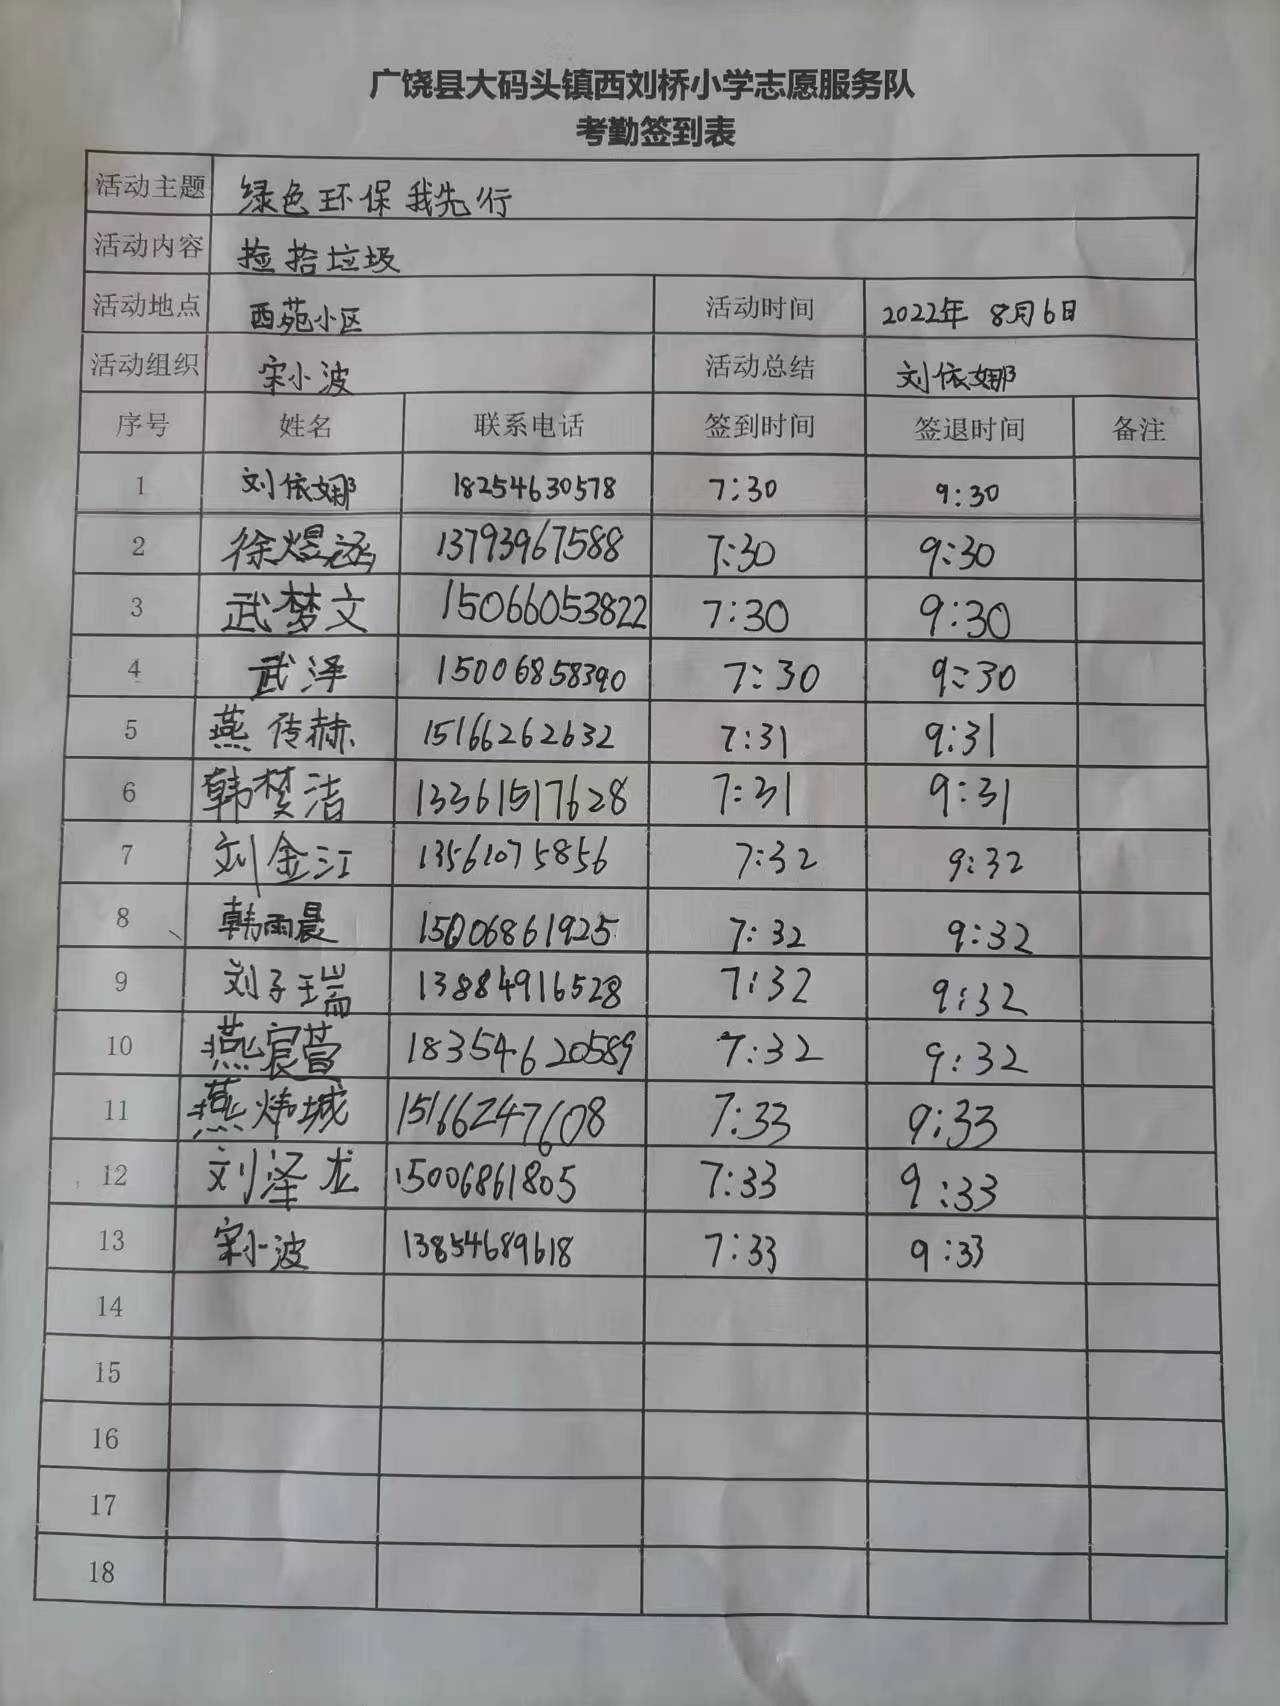 广饶县大码头镇西刘桥小学志愿服务队
考勤签到表
活动主题 绿色环保我先行
活动内容 捡拾垃圾
活动地点 西苑小区 活动时间 2022年8月6日
活动组织 宋小波 活动总结 刘依娜
序号 姓名 联系电话 签到时间 签退时间 备注
1 刘依娜 18254630578 7:30 9:30
2 徐煜涵 13793967588 7:30 9:30
3 武梦文 15066053822 7:30 9:30
4 武泽 15006858390 7:30 9:30
5 燕传赫 15166262632 7:31 9:31
6 韩梦洁 13361517628 7:31 9:31
7 刘金江 13561075856 7:32 9:32
8 韩雨晨 15006861925 7:32 9:32
9 刘子瑞 13884916528 7:32 9:32
10 燕宸萱 18354620589 7:32 9:32
11 燕炜城 15166247608 7:33 9:33
12 刘泽龙 15006861805 7:33 9:33
13 宋小波 13854689618 7:33 9:33
14
15
16
17
18